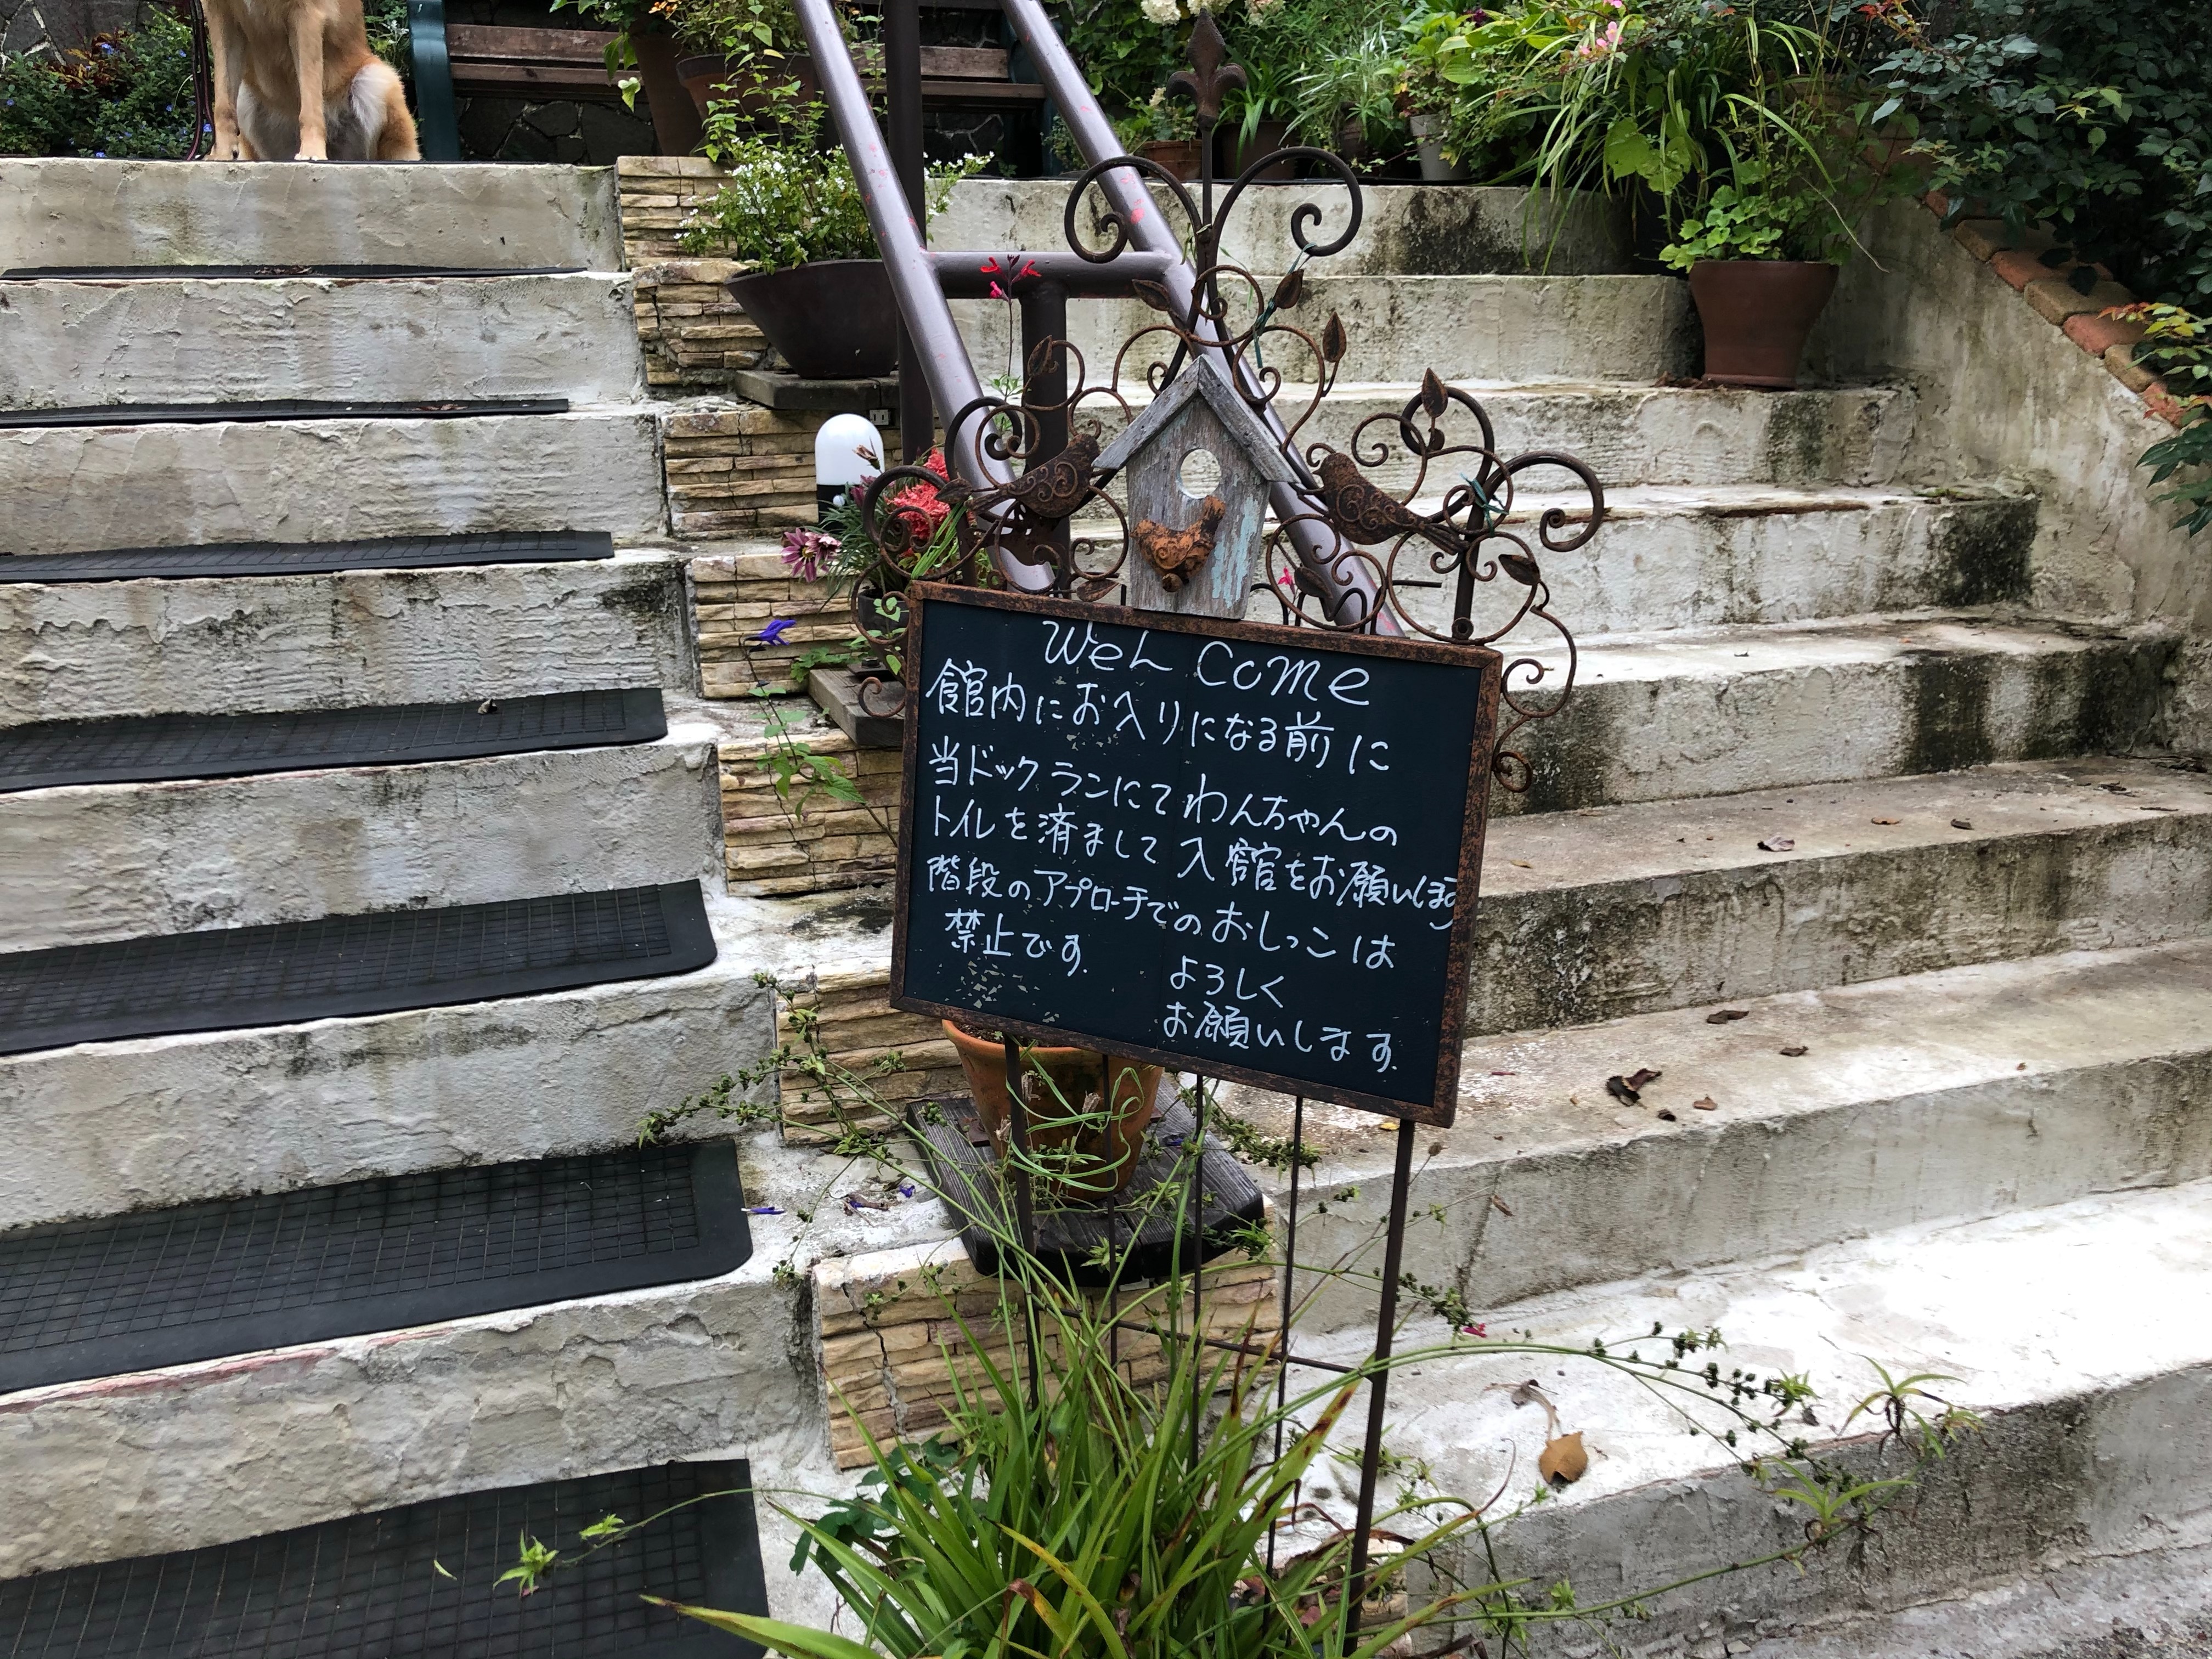 WeL Come
館内にお入りになる前に
当ドックランにてわんちゃんの
トイレを済まして入館をお願いします
階段のアプローチでのおしっこは
禁止です。
よろしく
お願いします。